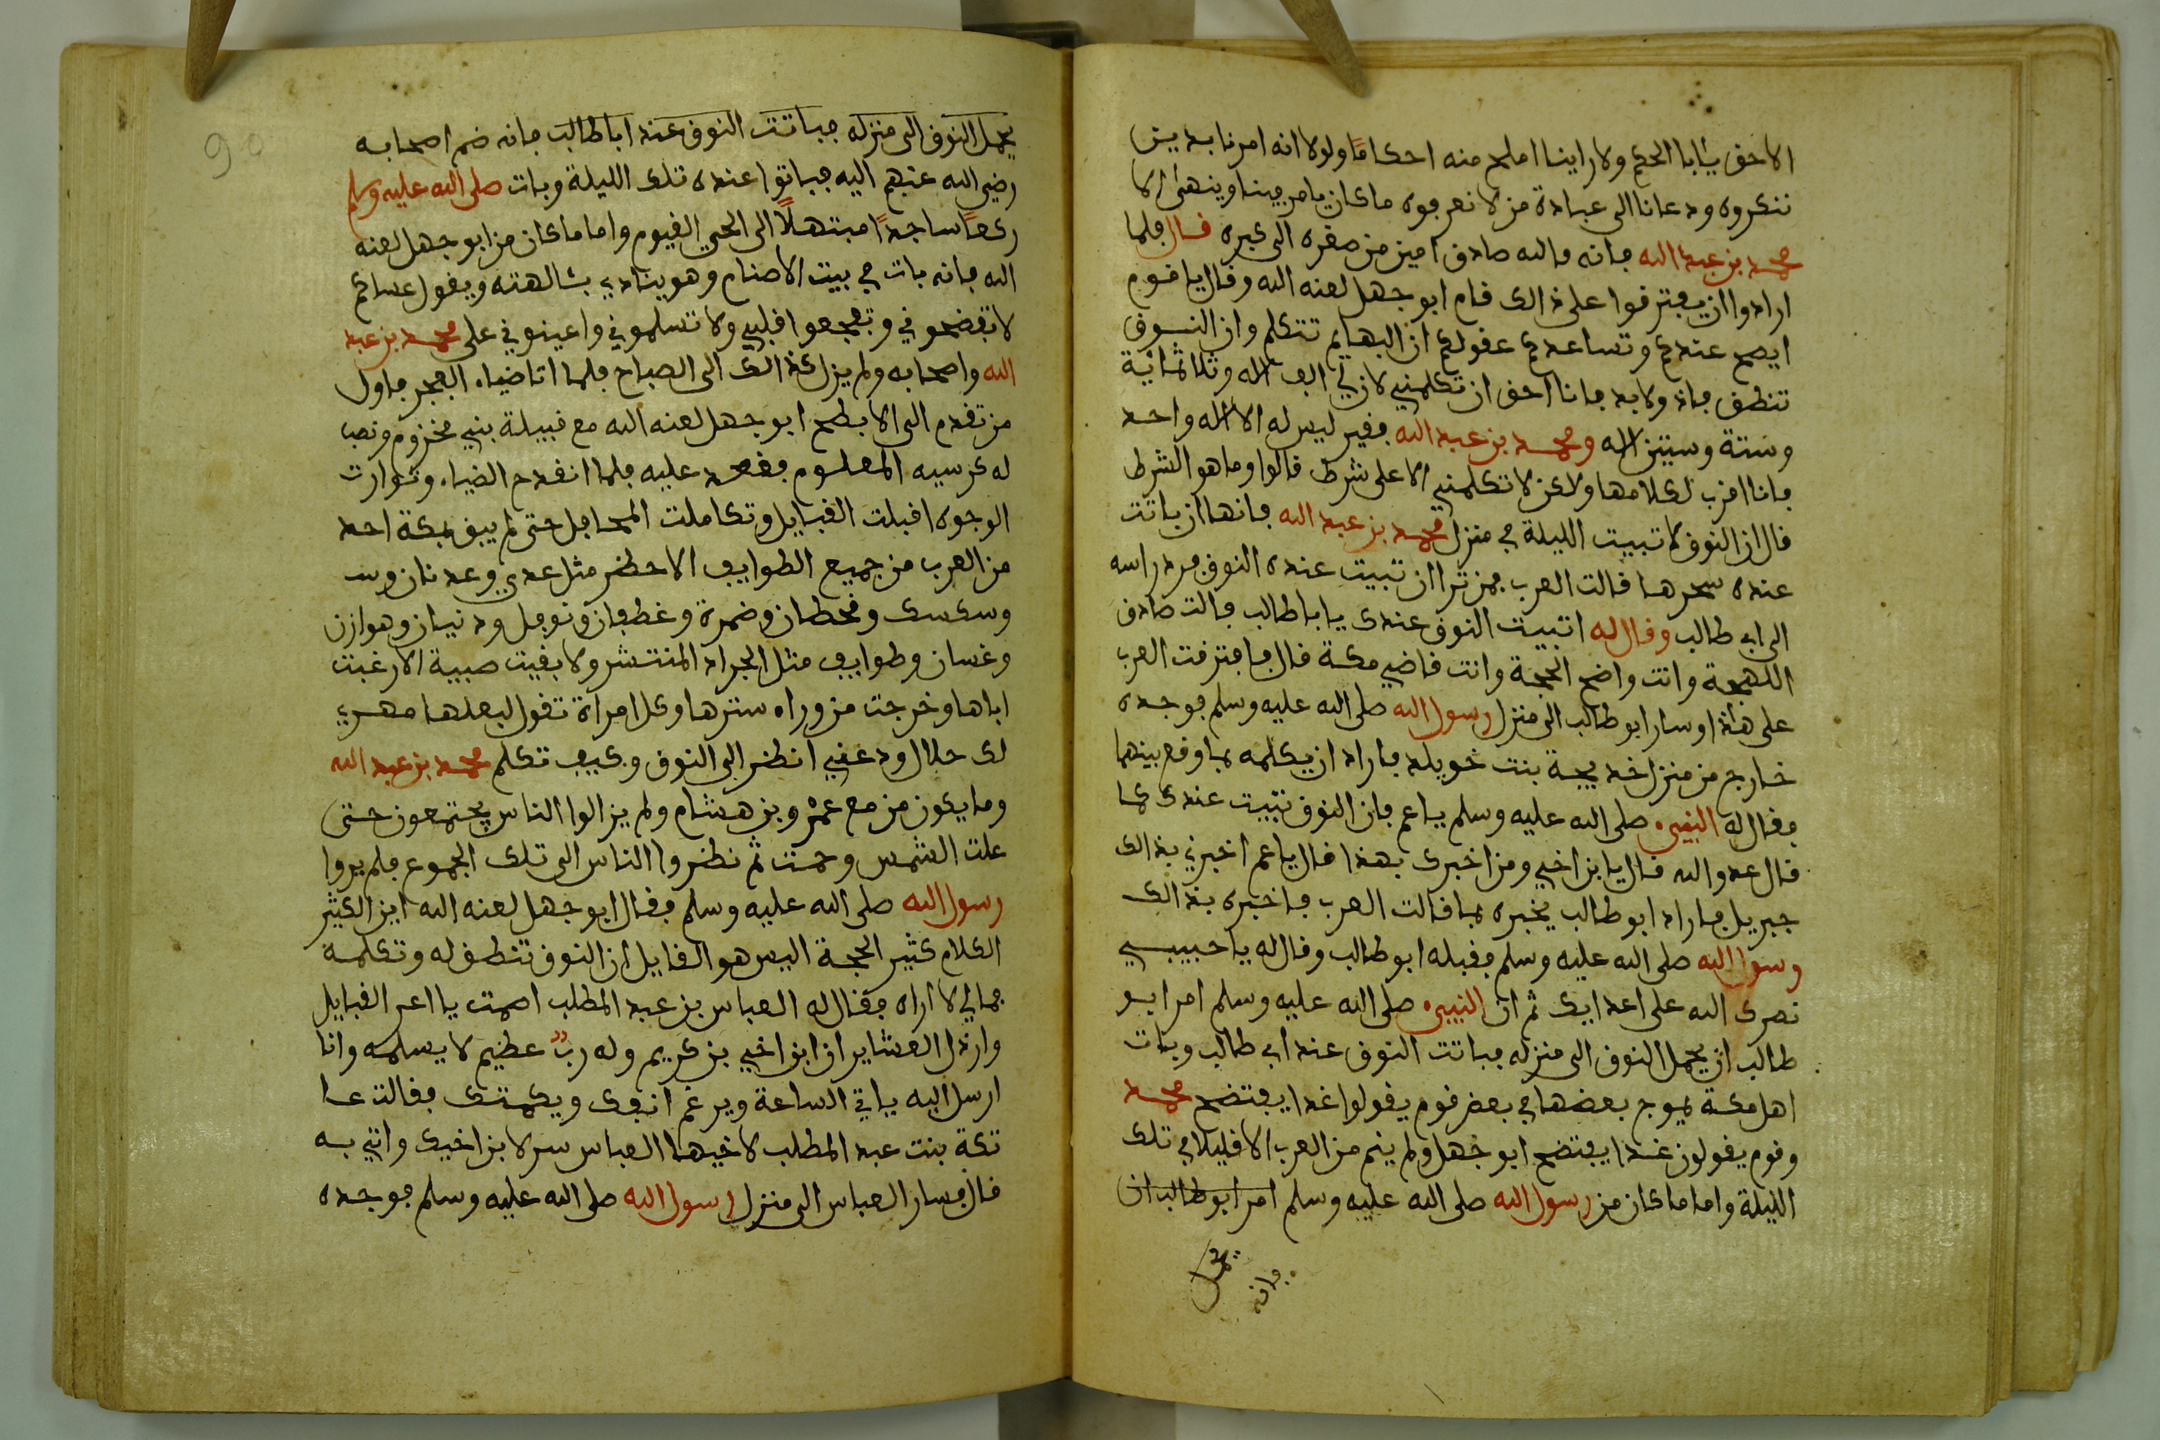 الاحق يابا الحكم ولا راينا املح منه احكامًا ولولا انه امرنا بدين
ننكروه ودعانا الى عبادة من لا نعرفوه ما كان يامر بيننا وينهى الا
محمد بن عبد الله فانه والله صادق امين من صغره الى كبره قال فلما
ارادوا ان يفترقوا على ذالك قام ابو جهل لعنه الله وقال يا قوم
ايصح عندكم وتساعدكم عقولكم ان البهايم تتكلم وان النوق
تنطق فان ولا بد فانا احق ان تكلمني لان لي الف اله وثلاثماية
وستة وستين اله ومحمد بن عبد الله فقير ليس له الا اله واحد
فانا اقرب لكلامها ولاكن لا تكلمني الا على شرط قالوا وما هو الشرط
قال ان النوق لا تبيت الليلة في منزل محمد بن عبد الله فانها ان باتت
عنده سحرها قالت العرب فمن ترا ان تبيت عنده النوق فرد راسه
الى ابي طالب وقال له اتبيت النوق عندك يابا طالب فالت صادق
اللهجة وانت واضح الحجة وانت قاضي مكة قال فافترقت العرب
على هذا وسار ابو طالب الى منزل رسول الله صلى الله عليه وسلم فوجده
خارج من منزل خديجة بنت خويلد فاراد ان يكلمه بما وقع بينهما
فقال له النبيء صلى الله عليه وسلم يا عم فان النوق تبيت عندك كما
قال عدو الله قال يا بن اخي ومن اخبرك بهذا قال يا عم اخبرني بذالك
جبريل فاراد ابو طالب يخبره بما قالت العرب فاخبره بذالك
رسوا الله صلى الله عليه وسلم فقبله ابو طالب وقال له يا حبيبي
نصرك الله على اعدايك ثم ان النبيء صلى الله عليه وسلم امر ابو
طالب ان يحمل النوق الى منزله فباتت النوق عند ابي طالب وبات
اهل مكة يموج بعضها في بعض قوم يقولوا غدا يفتضح محمد
وقوم يقولون غدا يفتضح ابو جهل ولم ينم من العرب الا قليلا في تلك
الليلة واما ما كان من رسول الله صلى الله عليه وسلم امر ابو طالب ان
يحمل
فانه
90
يحمل النوق الى منزله فباتت النوق عند ابا طالب فانه ضم اصحابه
رضي الله عنهم اليه فباتوا عنده تلك الليلة وبات صلى الله عليه وسلم
ركعًا ساجدًا مبتهلاً الى الحي القيوم واما ما كان من ابو جهل لعنه
الله فانه بات في بيت الاصنام وهو ينادي بئالهته ويقول عساكم
لا تفضحوني وتفجعوا قلبي ولا تسلموني واعينوني على محمد بن عبد
الله واصحابه ولم يزل كذالك الى الصباح فلما اتا ضياء الفجر فاول
من تقدم الى الابطح ابو جهل لعنه الله مع قبيلة بني مخزوم ونصب
له كرسيه المعلوم فقعد عليه فلما انقدم الضياء وتوارت
الوجوه اقبلت القبايل وتكاملت المحافل حتى لم يبق بمكة احد
من العرب من جميع الطوايف الا حظر مثل عدي وعدنان وسـ
وسكسك وقحطان وضمرة وغطفان ونوفل وذنيان وهوازن
وغسان وطوايف مثل الجراد المنتشر ولا بقيت صبية الا رغبت
اباها وخرجت من وراء سترها وكل امراة تقول لبعلها مهري
لك حلال ودعني انظر الى النوق وكيف تكلم محمد بن عبد الله
وما يكون من مع عمرو بن هشام ولم يزالوا الناس يجتمعون حتى
علت الشمس وحمت ثم نظروا الناس الى تلك الجموع فلم يروا
رسول الله صلى الله عليه وسلم فقال ابو جهل لعنه الله اين الكثير
الكلام كثير الحجة اليس هو القايل ان النوق تنطق له وتكلمه
فمالي لا اراه فقال له العباس بن عبد المطلب اصمت يا اعر القبايل
وارذل العشاير ان ابن اخي بن كريم وله ربٌ عظيم لا يسلمه وانا
ارسل اليه ياتي الساعة ويرغم انفك ويكمتك فقالت عا
تكة بنت عبد المطلب لاخيها العباس سر لابن اخيك واتني به
قال فسار العباس الى منزل رسول الله صلى الله عليه وسلم فوجده